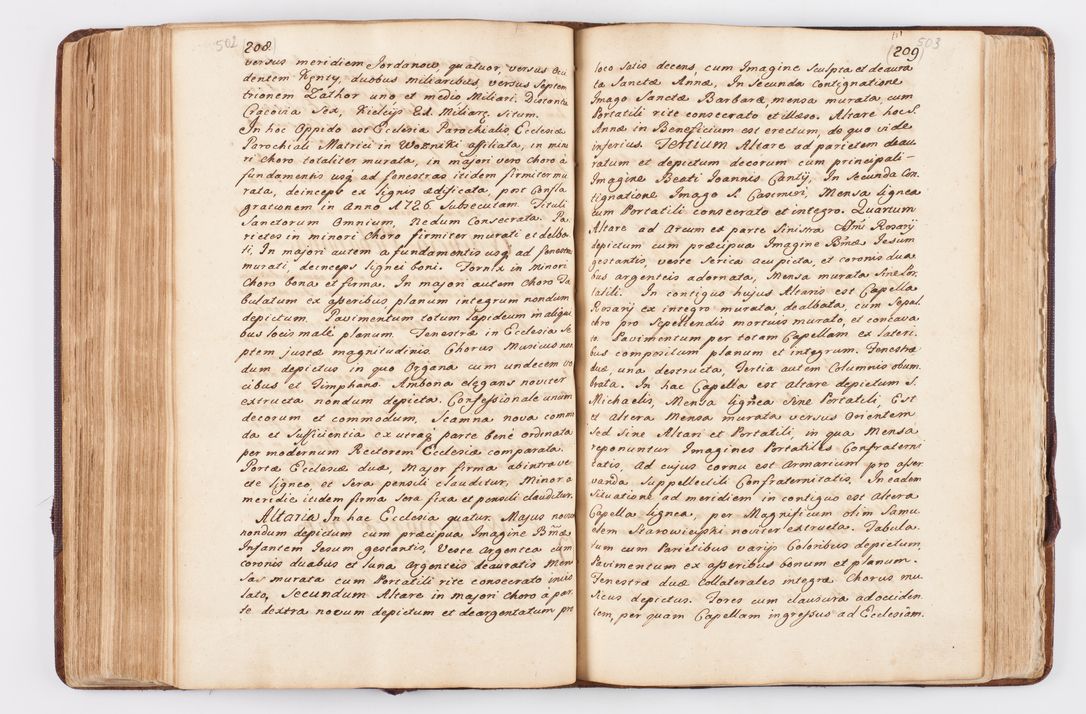 502
208
versus meridiem Jordanow quatuor, versus Occi
dentem Kęnty, duobus miliaribus, versus Septem
trionem Zathor uno et medio Miliari. Distante
Cracovia Sex, Kielcijs
In hoc Oppido est Ecclesia Parochialis Ecclesiæ
Parochiali Matrici in Woźniki affiliata, in mino
ri choro totaliter murata, in majori vero choro à
fundamentis usq ad fenestras itidem firmiter mu
rata, deinceps ex lignis ædificata, post Confla
grationem in Anno 1726. Subsecutam. Tituli
Sanctorum Omnium, Nedum Consecrata. Pa
rietes in minori Choro firmiter murati et dealba
ti, In majori autem à fundamentis usq ad fenestras
murati, deinceps lignei boni. Fornix in Minori
Choro bona et firma. In majori autem Choro Ta
bulatum ex asseribus planum integrum nondum
depictum. Pavimentum totum lapideum in aliqui
bus locis malè planum. Fenestræ in Ecclesia Se
ptem justæ magnitudinis. Chorus Musicus non
dum depictus in quo Organa cum undecem vo
cibus et Timphano. Ambona elegans noviter
extructa nondum depicta. Confessionale unum
decorum et commodum, Scamna nova commo
da et Sufficientia ex utraq parte bene ordinata
per modernum Rectorem Ecclesiæ comparata.
Portæ Ecclesiæ duæ, Major firma ab intra ve
cte ligneo et Sera pensili clauditur, Minor a
meridie itidem firma Sera fixa et pensili clauditur.
Altaria In hac Ecclesia quatuor. Majus novum
nondum depictum cum præcipua Imagine Bmæ
Infantem Jesum gestantis, Veste Argentea cum
coronis duabus et luna Argenteis deauratis Men
sa murata cum Portatili rite consecrato invio
lato, Secundum Altare in majori choro à par
te dextra novum depictum et deargentatum pro
503
209
loco Satis decens, cum Imagine Sculpta et deaura
ta Sanctæ Annæ, In Secunda Contignatione
Imago Sanctæ Barbaræ, mensa murata, cum
Portatili rite consecrato et illæso. Altare hoc S.
Annæ in Beneficium est erectum, de quo vide
inferius. Tertium Altare ad parietem deau
ratum et depictum decorum cum principali
Imagine Beati Joannis Cantij, In Secunda Con
tignatione Imago S. Casimiri, Mensa lignea
cum Portatili consecrato et integro. Quartum
Altare ad Arcum ex parte Sinistra SSmi Rosarij
depictum cum præcipua Imagine Bmæ Jesum
gestantis, veste Serica acu picta, et coronis dua
bus argenteis adornata, Mensa murata Sine Por
tatili. In contiguo hujus Altaris est Capella
Rosarij ex integro murata, dealbata, cum Sepul
chro pro Sepeliendis mortuis murato, et concava
to. Pavimentum per totam Capellam ex lateri
bus compositum planum et integrum. Fenestræ
duæ, una destructa, Tertia autem Columnis obum
brata. In hac Capella est Altare depictum S.
Michaelis, Mensa lignea Sine Portatili. Est
et altera Mensa murata versus Orientem
Sed Sine Altari et Portatili, in qua Mensa
reponuntur Imagines Portatiles Confraterni
tatis, Ad cujus cornu est Armarium pro asser
vanda Suppellectili Confraternitatis, In eadem
Situatione ad meridiem in contiguo est Altera
Capella lignea, per Magnificum olim Samu
elem Starowieyski noviter extructa. Tabula
tum cum Parietibus varijs Coloribus depictum,
Pavimentum ex asseribus bonum et planum.
Fenestræ duæ Collaterales integræ Chorus mu
sicus depictus. Fores cum clausura ad occiden
tem, per quam Capellam ingressus ad Ecclesiam.